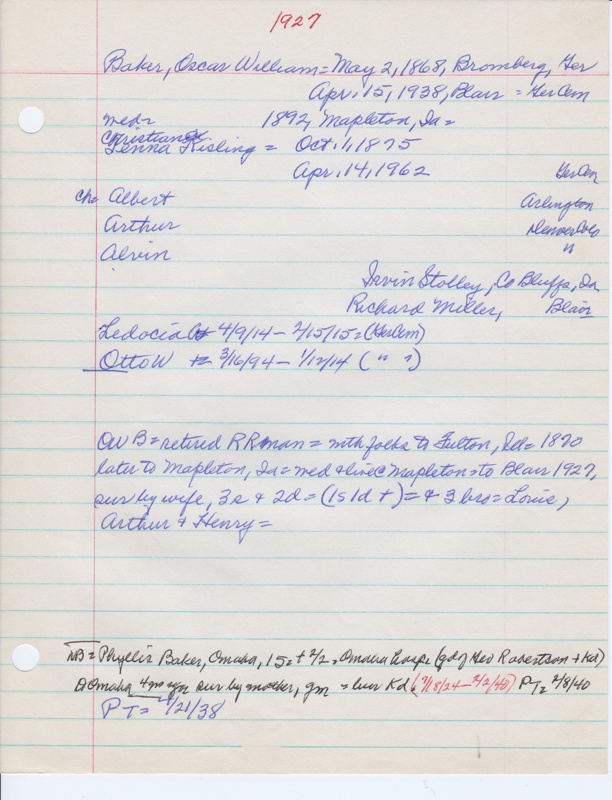 1927
Baker, Oscar William = May 2, 1868, Bromberg, Ger
Apr. 15, 1938, Blair = GerCem
med = 1892, Mapleton, Ia =
Christiana
Lenna Kisling = Oct. 1, 1875
Apr. 14, 1962 GerCem
ch = Albert Arlington
Arthur Denver Colo
Alvin "
Irvin Stolley, Co Bluffs, Ia
Richard Miller, Blair
Ledocia 4/9/14 - 2/15/15 = (GerCem)
Otto W 3/16/94 - 1/12/14 ( " " )
OW B = retired RR man = mth folks to Fulton, 1870
later to Mapleton, Ia = med & live Mapleton = to Blair 1927,
sur by wife, 3s & 2d = (1s 1d +) = & 3 bro = Louis,
Arthur & Henry =
NB = Phyllis Baker, Omaha, 15 = + 2/2 = Omaha hosp = (gd of Geo Robertson + Kd)
Omaha 4 mo ago sur by mother, gm = bur Kd (3/18/24 - 2/2/40) PT = 2/8/40
PT = 4/21/38